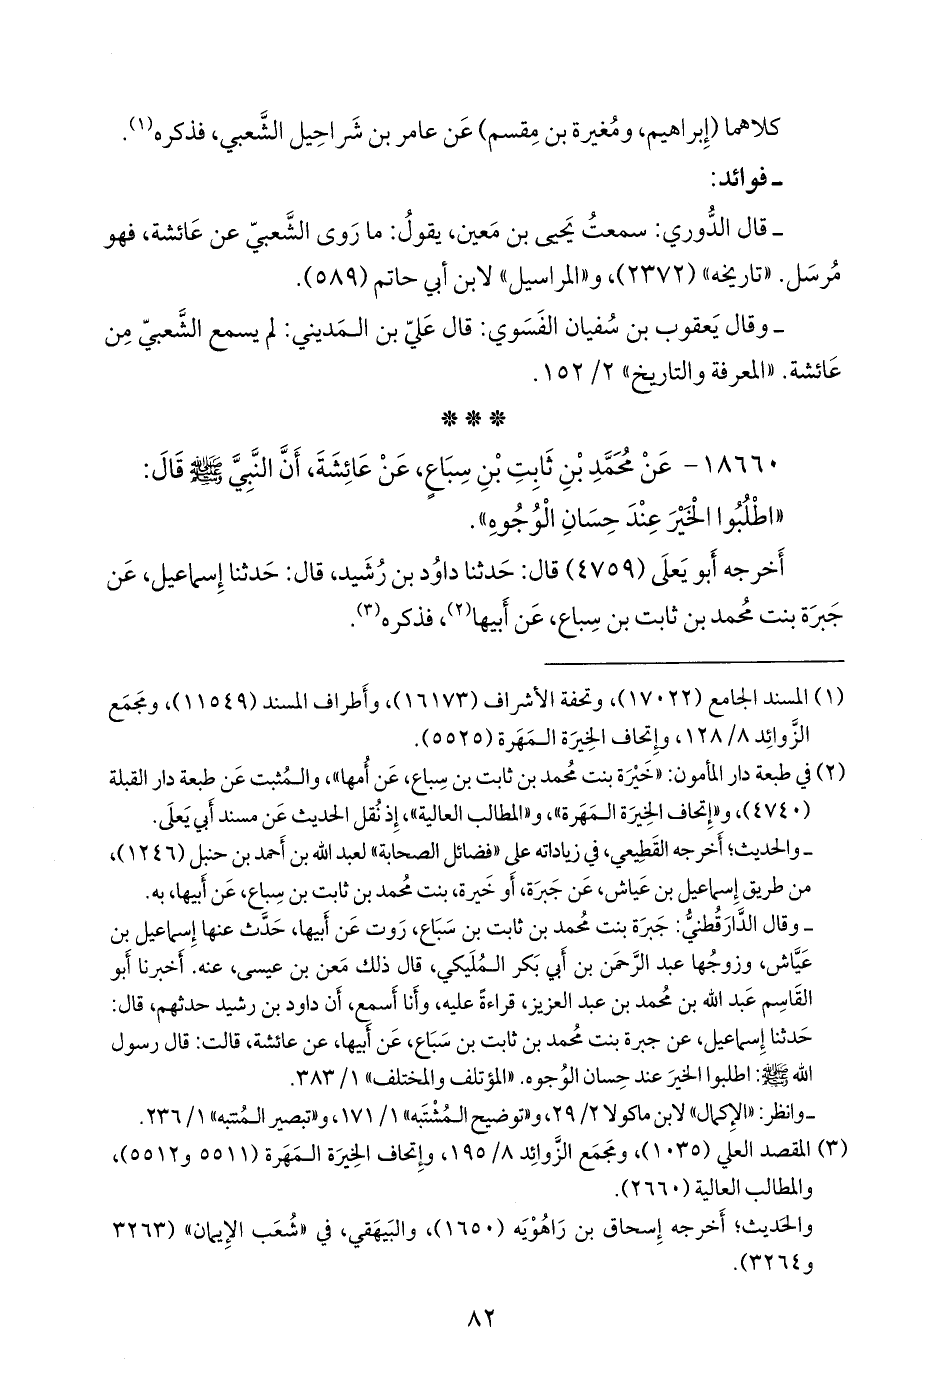 كلاهما (إبراهيم، ومُغيرة بن مِقسم) عَن عامر بن شَراحِيل الشَّعبي، فذكره(١).
ـ فوائد:
ـ قال الدُّوري: سمعتُ يَحيى بن مَعين، يقولُ: ما رَوى الشَّعبيّ عن عَائشة، فهو
مُرسَل. «تاريخه» (٢٣٧٢)، و«المراسيل» لابن أبي حاتم (٥٨٩).
ـ وقال يَعقوب بن سُفيان الفَسَوي: قال عَليّ بن الـمَديني: لم يسمع الشَّعبيّ مِن
عَائشة. «المعرفة والتاريخ» ٢/ ١٥٢.
* * *
١٨٦٦٠- عَنْ مُحَمَّدِ بْنِ ثَابِتِ بْنِ سِبَاعٍ، عَنْ عَائِشَةَ، أَنَّ النَّبِيَّ ﷺ قَالَ:
«اطْلُبُوا الْخَيْرَ عِنْدَ حِسَانِ الْوُجُوهِ».
أَخرجه أَبو يَعلَى (٤٧٥٩) قال: حَدثنا داوُد بن رُشَيد، قال: حَدثنا إِسماعيل، عَن
جَبرَة بنت مُحمد بن ثابت بن سِباع، عَن أَبيها(٢)، فذكره(٣).
(١) المسند الجامع (١٧٠٢٢)، وتحفة الأشراف (١٦١٧٣)، وأَطراف المسند (١١٥٤٩)، ومَجمَع
الزَّوائِد ٨/ ١٢٨، وإِتحاف الخِيرَة الـمَهَرة (٥٥٢٥).
(٢) في طبعة دار المأمون: «خَيْرَة بنت مُحمد بن ثابت بن سِباع، عَن أُمها»، والـمُثبت عَن طبعة دار القبلة
(٤٧٤٠)، و«إِتحاف الخِيرَة الـمَهَرة»، و«المطالب العالية»، إِذ نُقل الحديث عَن مسند أَبي يَعلَى.
ـ والحديث؛ أَخرجه القَطِيعي، في زياداته على «فضائل الصحابة» لعبد الله بن أحمد بن حنبل (١٢٤٦)،
من طريق إِسماعيل بن عَياش، عَن جَبرَة، أَو خَيرة، بنت مُحمد بن ثابت بن سِباع، عَن أَبيها، به.
ـ وقال الدَّارَقُطنيُّ: جَبرَة بنت مُحمد بن ثابت بن سَبَاع، رَوت عَن أَبيها، حَدَّث عنها إِسماعيل بن
عَيَّاش، وزوجُها عبد الرَّحمَن بن أَبي بَكر المُلَيكي، قال ذلك مَعن بن عيسى، عنه. أَخبرنا أَبو
القَاسِم عَبد الله بن مُحمد بن عبد العزيز، قراءةً عليه، وأَنا أَسمع، أَن داود بن رشيد حدثهم، قال:
حَدثنا إِسماعيل، عن جبرة بنت مُحمد بن ثابت بن سَبَاع، عَن أَبيها، عن عائشة، قالت: قال رسول
الله ﷺ: اطلبوا الخيَر عند حِسان الوُجوه. «المؤتلف والمختلف» ١/ ٣٨٣.
ـ وانظر: «الإِكمال» لابن ماكولا ٢/ ٢٩، و«توضيح الـمُشْتَبه» ١/ ١٧١، و«تبصير الـمُنتبه» ١/ ٢٣٦.
(٣) المقصد العلي (١٠٣٥)، ومَجمَع الزَّوائِد ٨/ ١٩٥، وإِتحاف الخِيرَة الـمَهَرة (٥٥١١ و٥٥١٢)،
والمطالب العالية (٢٦٦٠).
والحَديث؛ أَخرجه إِسحاق بن رَاهُوْيَه (١٦٥٠)، والبَيهَقي، في «شُعَب الإِيمان» (٣٢٦٣
و٣٢٦٤).
٨٢